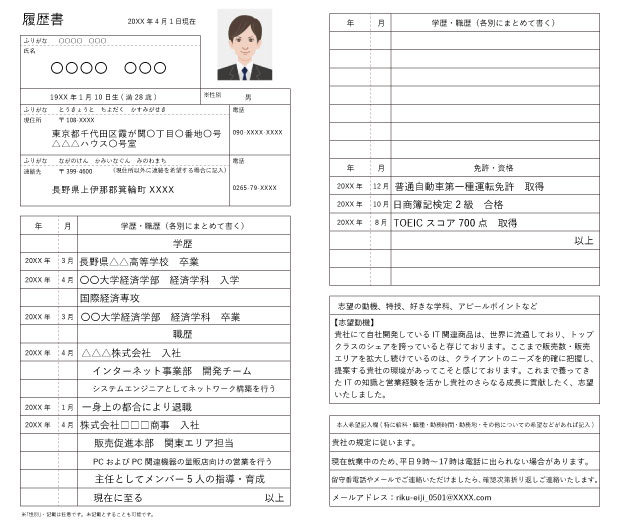 履歴書
20XX 年 4 月 1 日現在
ふりがな 〇〇〇〇 〇〇〇
氏名
〇〇〇〇 〇〇〇
19XX 年 1 月 10 日生 ( 満 28 歳 )
※性別 男
ふりがな とうきょうと ちよだく かすみがせき
電話
現住所 〒108-XXXX
東京都千代田区霞が関〇丁目〇番地〇号
△△△ハウス〇号室
090-XXXX-XXXX
ふりがな ながのけん かみいなぐん みのわまち
電話
連絡先 〒 399-4600 (現住所以外に連絡を希望する場合に記入)
長野県上伊那郡箕輪町 XXXX
0265-79-XXXX
年 月 学歴・職歴（各別にまとめて書く）
学歴
20XX 年 3 月 長野県△△高等学校 卒業
20XX 年 4 月 〇〇大学経済学部 経済学科 入学
国際経済専攻
20XX 年 3 月 〇〇大学経済学部 経済学科 卒業
職歴
20XX 年 4 月 △△△株式会社 入社
インターネット事業部 開発チーム
システムエンジニアとしてネットワーク構築を行う
20XX 年 1 月 一身上の都合により退職
20XX 年 4 月 株式会社□□□商事 入社
販売促進本部 関東エリア担当
PC および PC 関連機器の量販店向けの営業を行う
主任としてメンバー 5 人の指導・育成
現在に至る 以上
※「性別」・記載は任意です。未記載とすることも可能です。
年 月 学歴・職歴（各別にまとめて書く）
年 月 免許・資格
20XX 年 12 月 普通自動車第一種運転免許 取得
20XX 年 10 月 日商簿記検定 2 級 合格
20XX 年 8 月 TOEIC スコア 700 点 取得
以上
志望の動機、特技、好きな学科、アピールポイントなど
【志望動機】
貴社にて自社開発している IT 関連商品は、世界に流通しており、トップ
クラスのシェアを誇っていると存じております。ここまで販売数・販売
エリアを拡大し続けているのは、クライアントのニーズを的確に把握し、
提案する貴社の環境があってこそと感じております。これまで養ってき
た IT の知識と営業経験を活かし貴社のさらなる成長に貢献したく、志望
いたしました。
本人希望記入欄 ( 特に給料・職種・勤務時間・勤務地・その他についての希望などがあれば記入 )
貴社の規定に従います。
現在就業中のため、平日 9 時〜 17 時は電話に出られない場合があります。
留守番電話やメールでご連絡いただけましたら、確認次第折り返しご連絡いたします。
メールアドレス：riku-eiji_0501@XXXX.com